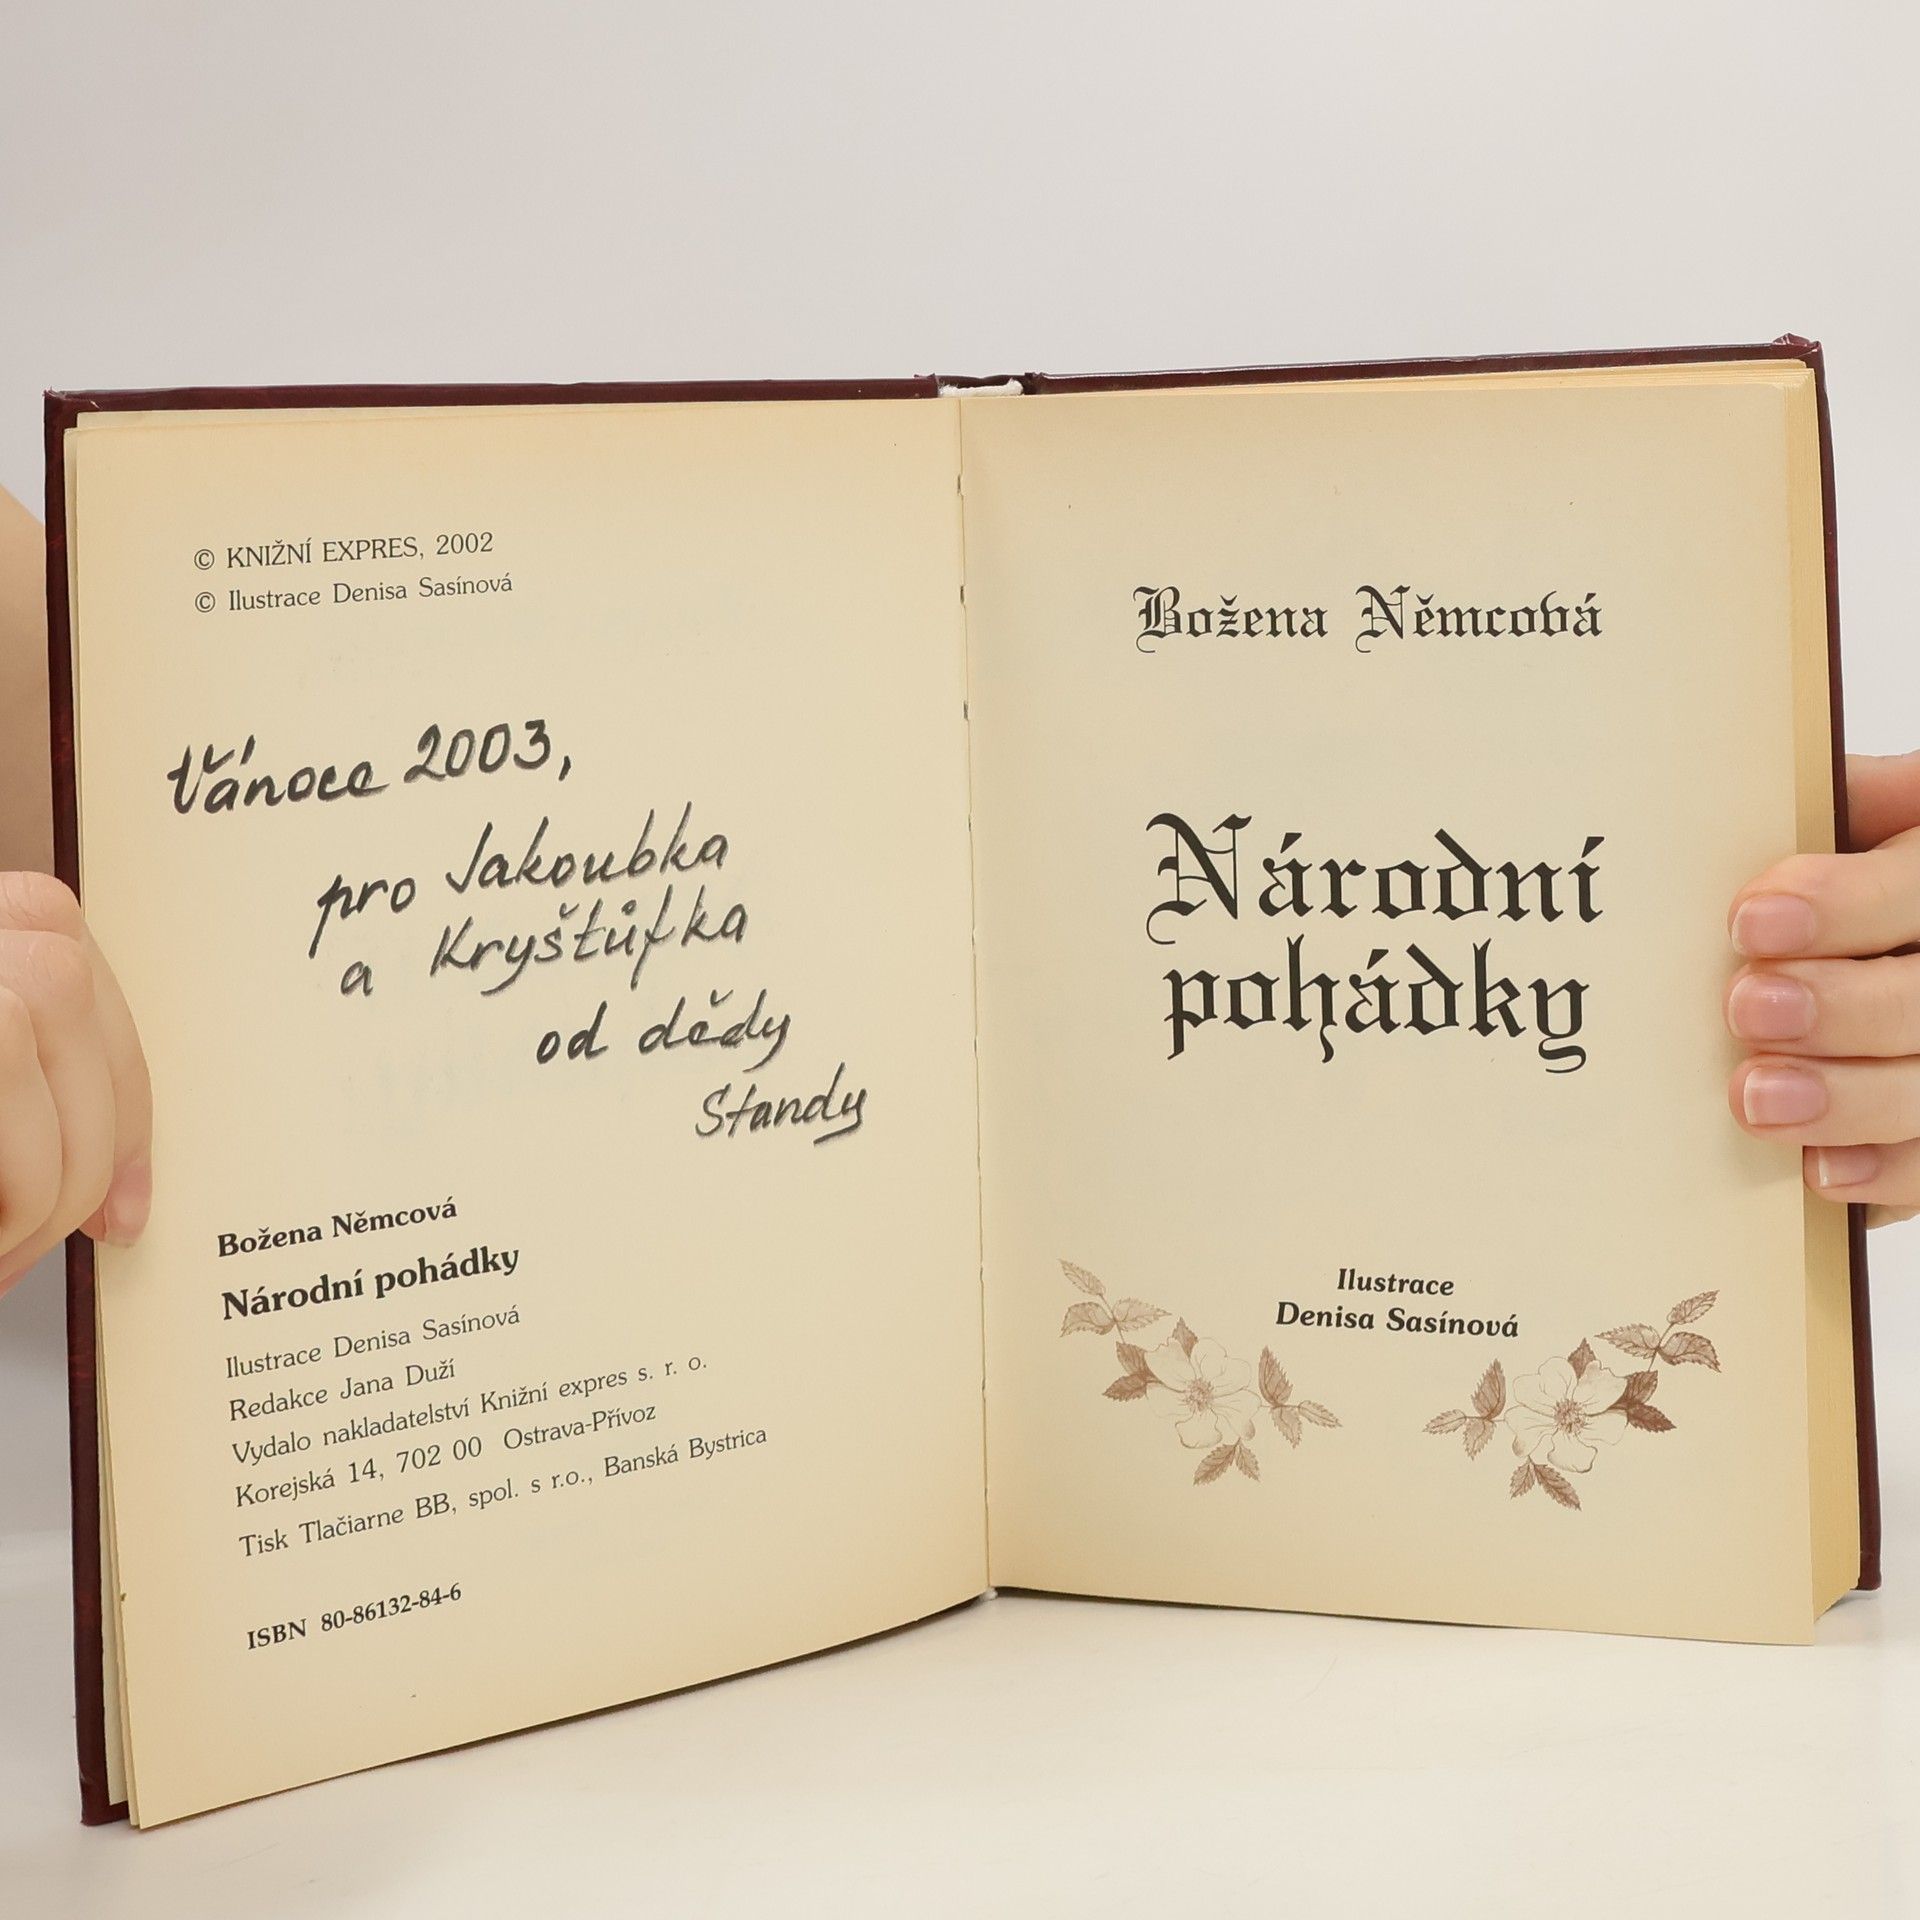 © KNIŽNÍ EXPRES, 2002
© Ilustrace Denisa Sasínová
Vánoce 2003,
pro Jakoubka
a Kryštůfka
od dědy
Standy
Božena Němcová
Národní pohádky
Ilustrace Denisa Sasínová
Redakce Jana Duží
Vydalo nakladatelství Knižní expres s. r. o.
Korejská 14, 702 00 Ostrava-Přívoz
Tisk Tlačiarne BB, spol. s r.o., Banská Bystrica
ISBN 80-86132-84-6
Božena Němcová
Národní
pohádky
Ilustrace
Denisa Sasínová